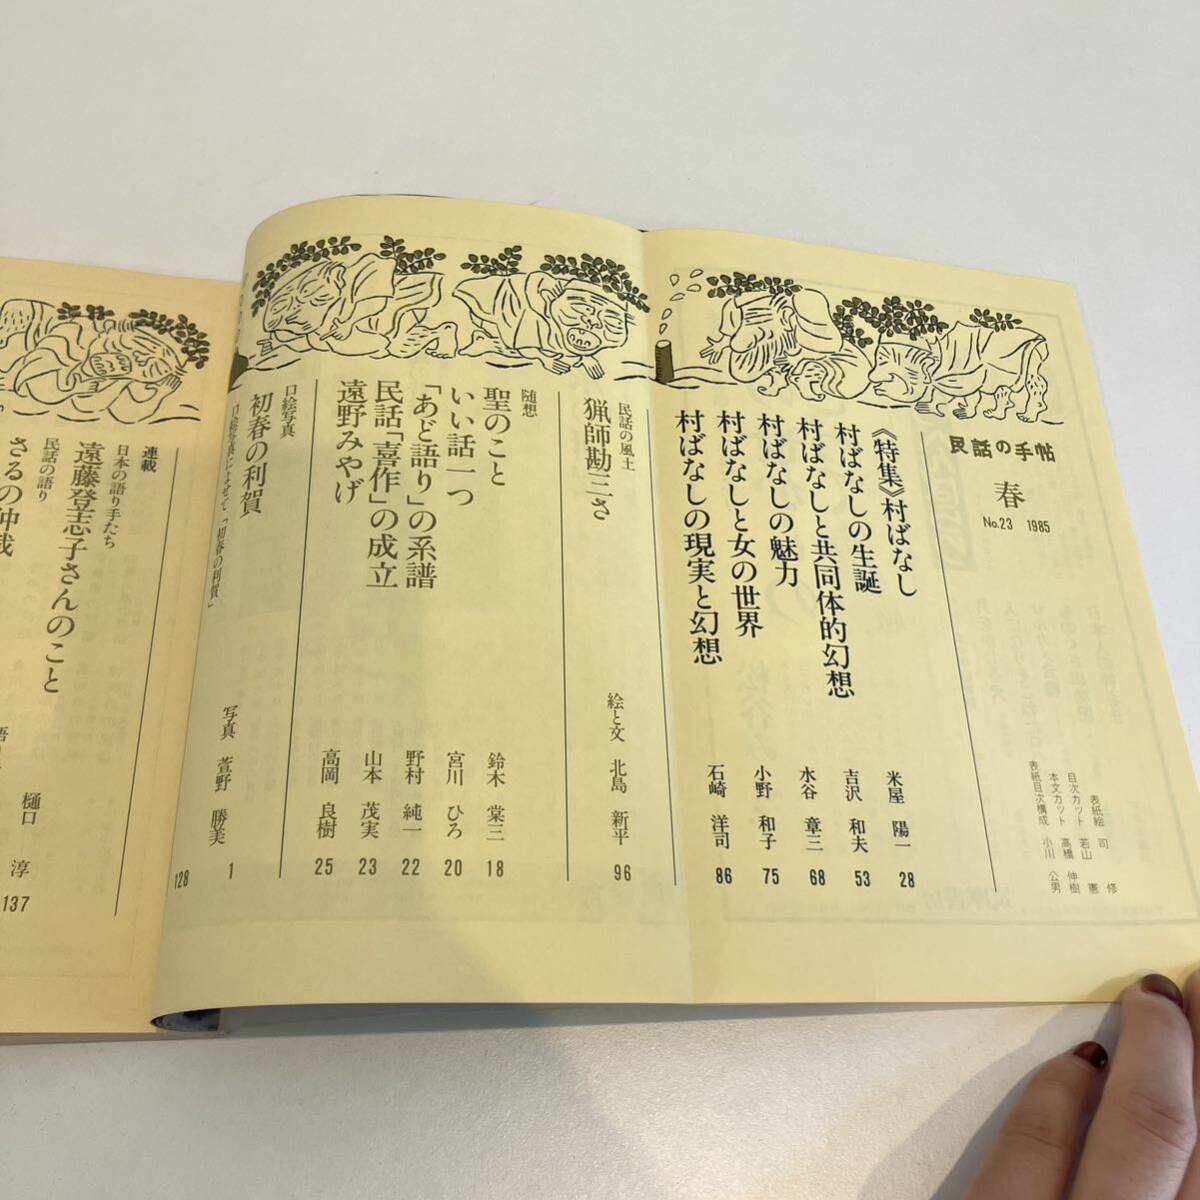 民話の手帖
春
No.23 1985
表紙絵 司 修
目次カット 若山 憲
本文カット 高橋 伸樹
表紙目次構成 小川 公男
《特集》村ばなし
村ばなしの生誕 米屋 陽一 28
村ばなしと共同体的幻想 吉沢 和夫 53
村ばなしの魅力 水谷 章三 68
村ばなしと女の世界 小野 和子 75
村ばなしの現実と幻想 石崎 洋司 86
民話の風土
猟師勘三さ 絵と文 北島 新平 96
随想
聖のこと 鈴木 棠三 18
いい話一つ 宮川 ひろ 20
「あど語り」の系譜 野村 純一 22
民話「喜作」の成立 山本 茂実 23
遠野みやげ 高岡 良樹 25
口絵写真
初春の利賀 写真 萱野 勝美 1
口絵写真によせて「初春の利賀」 128
連載
日本の語り手たち
遠藤登志子さんのこと 樋口 淳 137
民話の語り
さるの仲裁